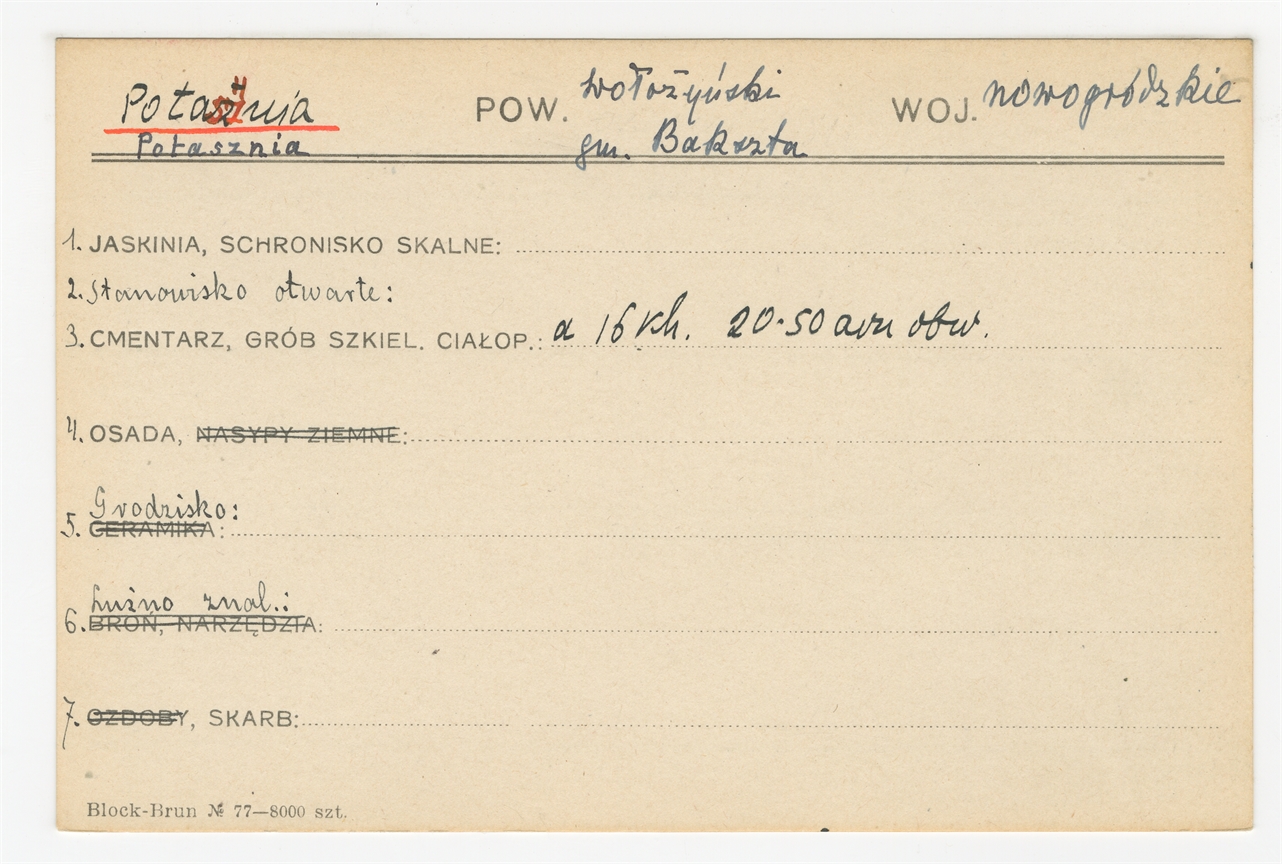 Potasznja POW. wołożyński WOJ. nowogródzkie
Potasznia gm. Bakszta
1. JASKINIA, SCHRONISKO SKALNE:
2. Stanowisko otwarte:
3. CMENTARZ, GRÓB SZKIEL. CIAŁOP.: a 16 kh. 20-50 arn obw.
4. OSADA, NASYPY ZIEMNE:
Grodzisko:
5. CERAMIKA:
Luźno znal.:
6. BROŃ, NARZĘDZIA:
7. OZDOBY, SKARB:
Block-Brun № 77—8000 szt.